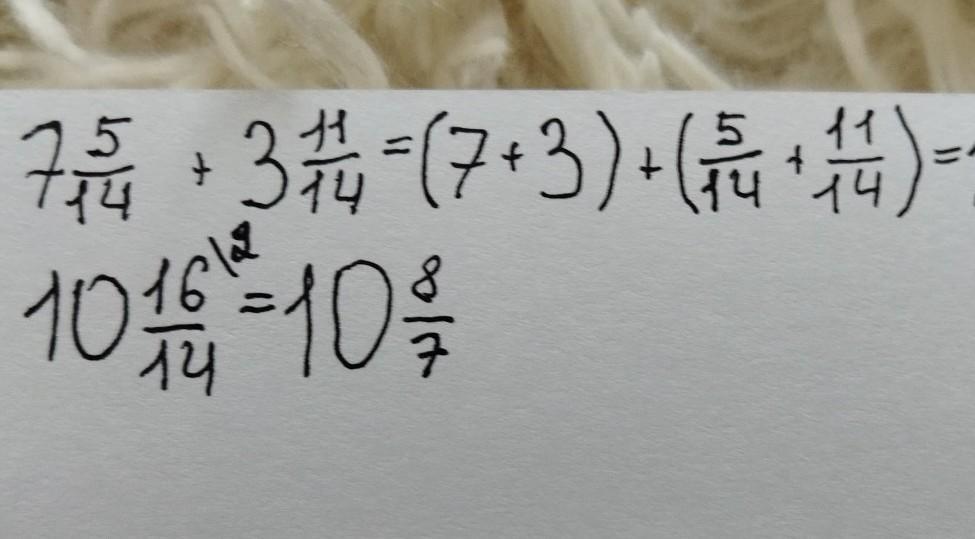 7 5/14 + 3 11/14 = (7 + 3) + (5/14 + 11/14) =
10 16/14 \2 = 10 8/7